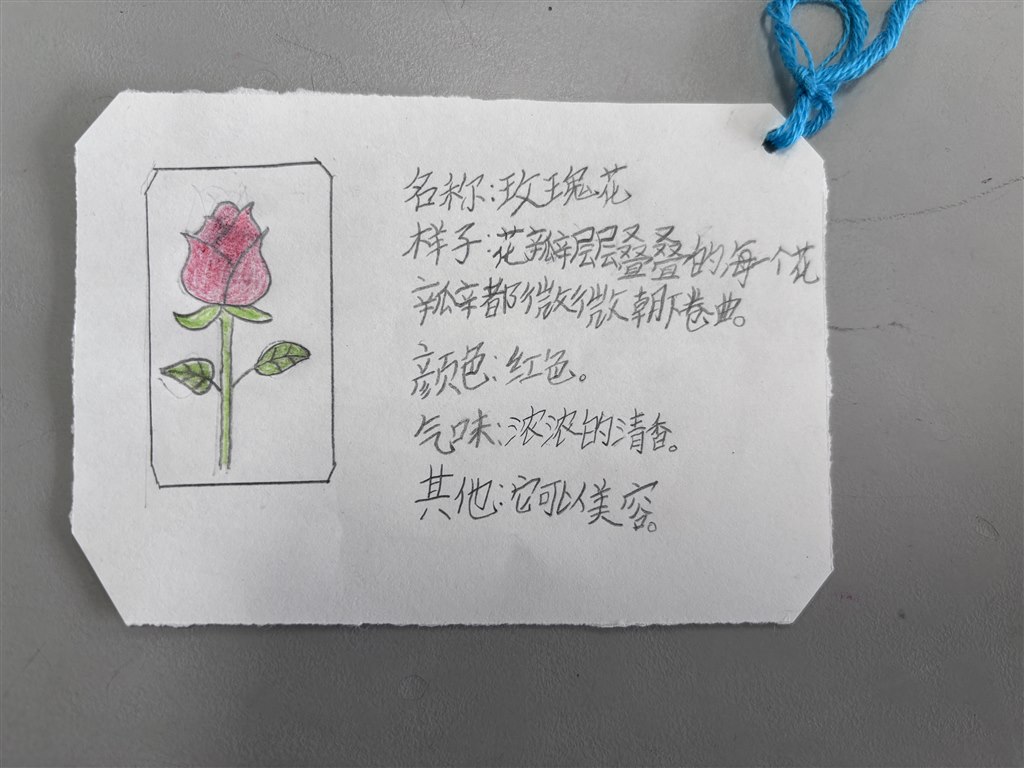 名称:玫瑰花
样子:花瓣层层叠叠的每个花
瓣都微微朝下卷曲。
颜色:红色。
气味:浓浓的清香。
其他:它可以美容。